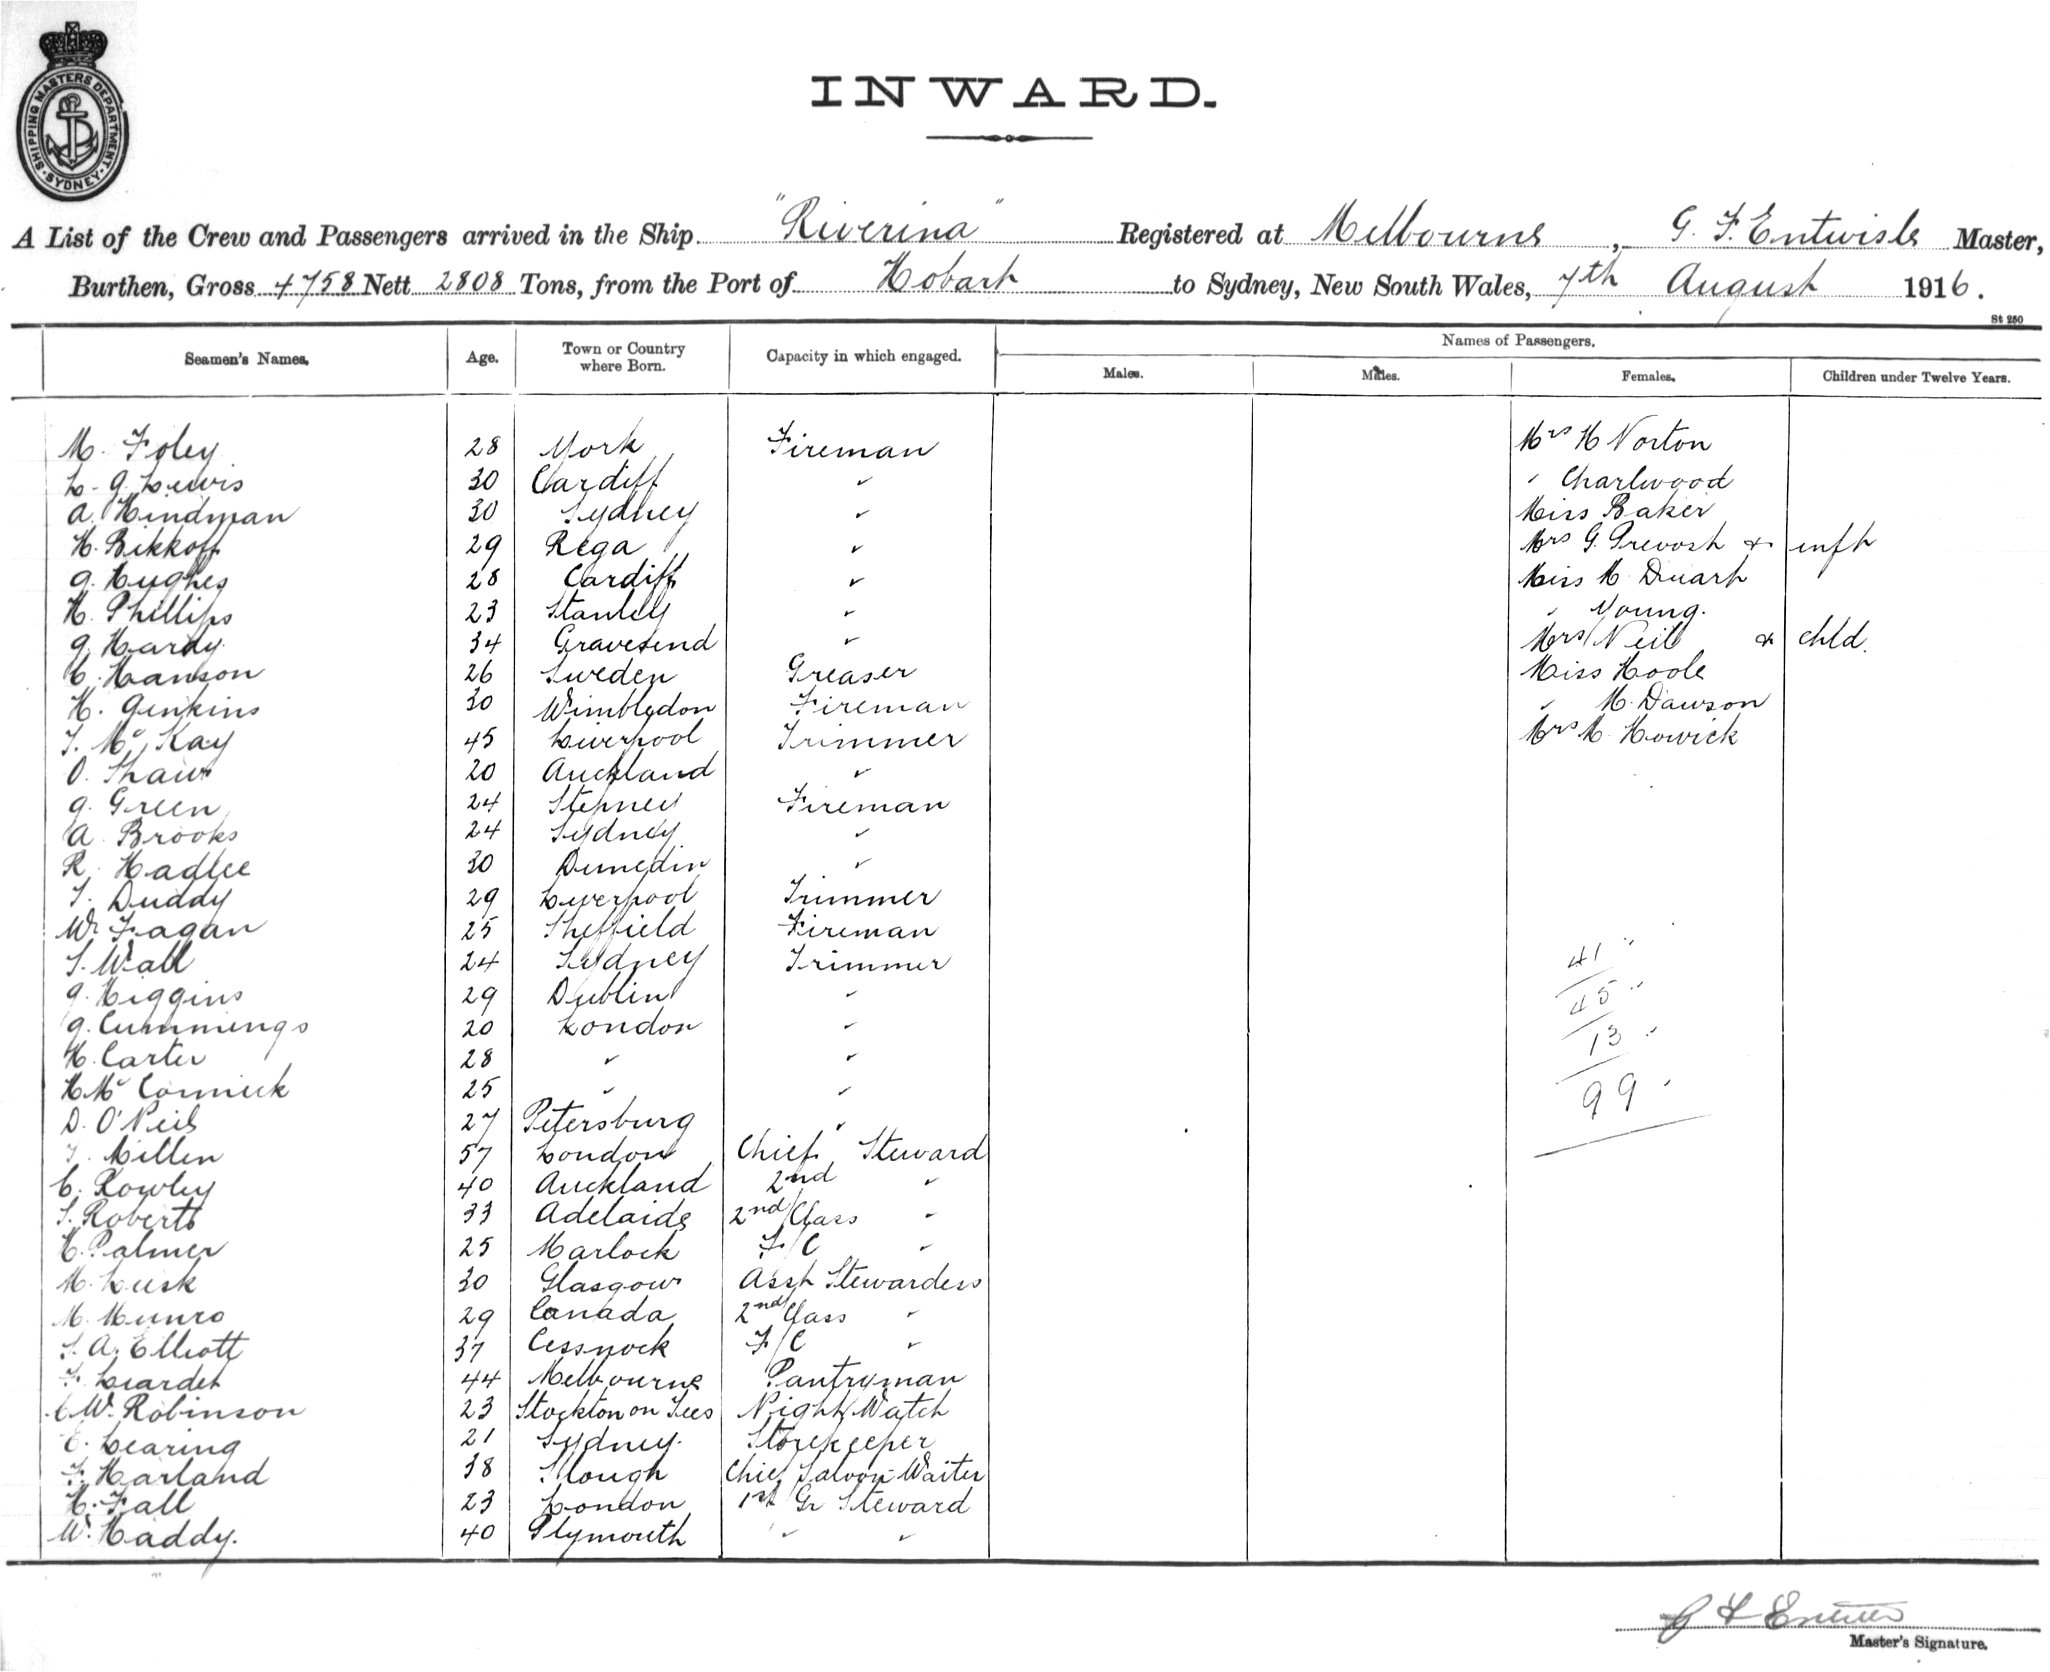 SHIPPING MASTERS DEPARTMENT. SYDNEY.
INWARD.
A List of the Crew and Passengers arrived in the Ship "Riverina" Registered at Melbourne, G. F. Entwisle Master,
Burthen, Gross 4758 Nett 2808 Tons, from the Port of Hobart to Sydney, New South Wales, 7th August 1916.
St 250
Seamen's Names. Age. Town or Country where Born. Capacity in which engaged. Names of Passengers.
Males. Males. Females. Children under Twelve Years.
M. Foley 28 York Fireman Mrs H Norton
L. J. Lewis 30 Cardiff " " Charlwood
A. Hindman 30 Sydney " Miss Baker
H. Bikkoff 29 Rega " Mrs G. Prevost & inft
J. Hughes 28 Cardiff " Miss M. Duart
H. Phillips 23 Stanley " " Young.
J. Hardy. 34 Gravesend " Mrs Neil & chld.
C. Hanson 26 Sweden Greaser Miss Hoole
H. Jenkins 30 Wimbledon Fireman " M. Dawson
T. McKay 45 Liverpool Trimmer Mrs M. Howick
O. Shaw 20 Auckland "
J. Green 24 Stepney Fireman
A. Brooks 24 Sydney "
R. Hadlee 30 Dunedin "
T. Duddy 29 Liverpool Trimmer
W. Fagan 25 Sheffield Fireman
S. Wall 24 Sydney Trimmer 41
J. Higgins 29 Dublin " 45
J. Cummings 20 London " 13
H. Carter 28 " "
H. McCormick 25 " " 99
D. O'Neil 27 Petersburg "
Millen 57 London Chief Steward
C. Rowley 40 Auckland 2nd "
S. Roberts 33 Adelaide 2nd Class "
H. Palmer 25 Marlock F/C "
M. Lusk 30 Glasgow Asst Stewardess
M. Munro 29 Canada 2nd Class "
S. A. Elliott 37 Cessnock F/C "
F. Liardet 44 Melbourne Pantryman
C W. Robinson 23 Stockton on Tees Night Watch
E. Learing 21 Sydney. Storekeeper
F. Harland 38 Slough Chief Saloon Waiter
H. Fall 23 London 1st Gr Steward
W. Haddy. 40 Plymouth " "
G F Entwisle
Master's Signature.